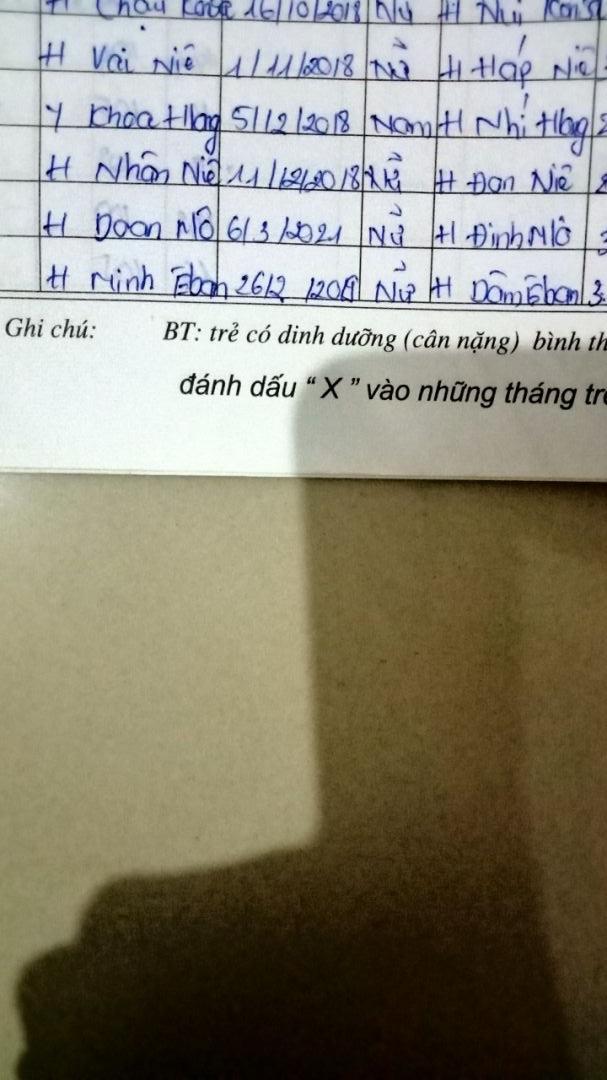 H Châu 16/10/2018 Nữ H
H Vải Niê 1/11/2018 Nữ H Háp Niê
Y Khoa Hlong 5/12/2018 Nam H Nhí Hlong
H Nhân Niê 11/12/2018 Nữ H Đan Niê
H Doan Mlô 6/3/2021 Nữ H Đinh Mlô
H Minh Êban 26/2 Nữ H Dôm Êban 3
Ghi chú: BT: trẻ có dinh dưỡng (cân nặng) bình
đánh dấu “ X ” vào những tháng